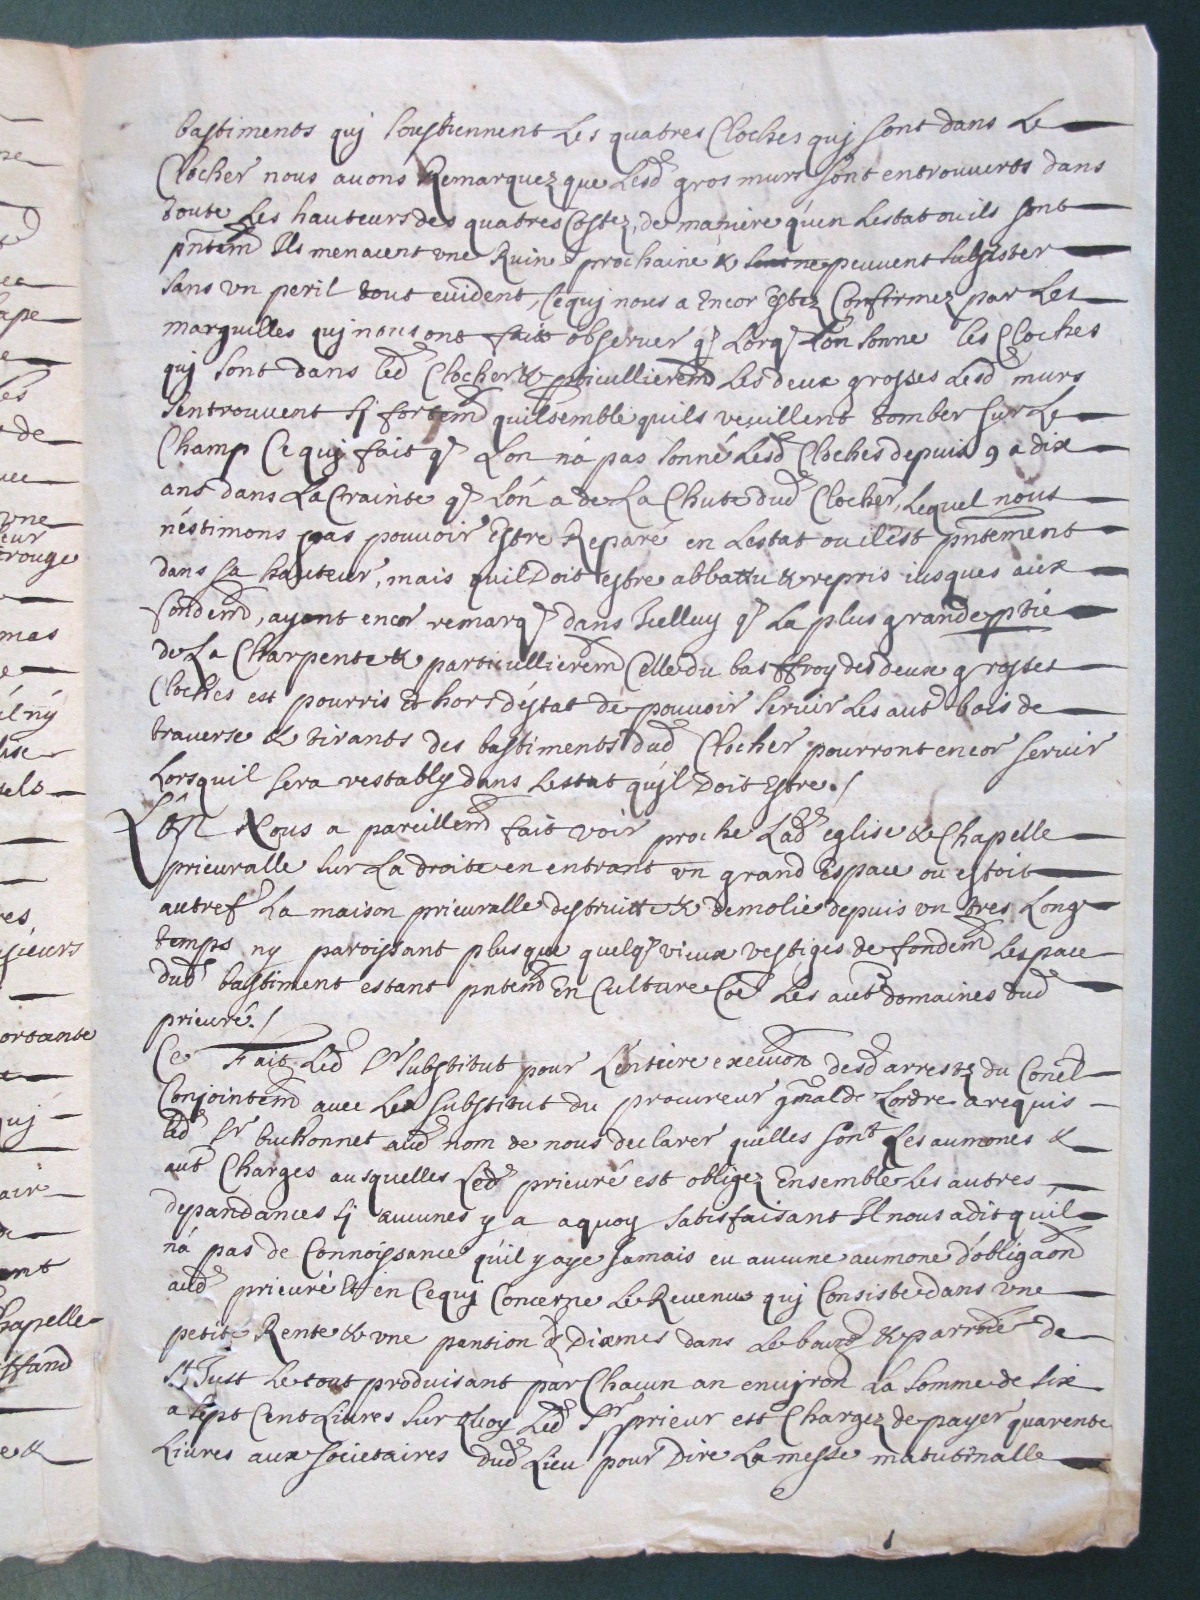 bastiments quj soustiennent Les quatres Cloches quj sont dans Le
Clocher nous avons Remarquez que Lesd gros murs sont entrouverts dans
toute Les hauteurs des quatres Costez, de maniere qu'en Lestat ou ils sont
pntem Ils menacent une Ruine prochaine & ne peuvent subsister
sans un peril tout euident, Ce quj nous a Encor Estez Confirmez par Les
marguilles quj nous ont fait obseruer q Lorq Lon sonne les Cloches
quj sont dans led Clocher & pticullierem Les deux grosses Lesd murs
sentrouvent sj fortem quil semble quils veuillent tomber sur Le
Champ Ce quj fait q Lon n'a pas sonné Lesd Cloches depuis 9 a dix
ans dans La Crainte q Lon a de La Chute dud Clocher, Lequel nous
n'estimons pas pouvoir Estre Reparé en Lestat ou il est pntement
dans sa hauteur, mais quil Doit estre abbattu & repris iusques aux
fondem, ayant encor remarq dans Icelluy q La plus grande ptie
de La Charpente & particullierem Celle du baffroy des deux grosses
Cloches est pourris Et hors d'estat de pouvoir seruir Les aut bois de
traverse & tirants des bastiments dud Clocher pourront encor seruir
Lorsquil sera restably dans Lestat qu'il Doit Estre./
Nous a pareillem fait voir proche Lad eglise & Chapelle
prieuralle sur La droite en entrant un grand Espace ou estoit
autref La maison prieuralle destruitte & demolie depuis un tres Long
temps ny paroissant plus que quelq vieux vestiges de fondem Lespace
dud bastiment estant pntem En Culture Coe Les aut domaines dud
prieuré./
Ce Fait Led Sr substitut pour L'entiere execuon desd arrests du Conel
Conjointem avec Le substitut du procureur gnal de Lordre a requis
led Sr buchonnet aud nom de nous declarer quelles sont Les aumones &
aut Charges ausquelles Led prieuré est obligez Ensemble Les autres
dependances sj aucunes y a aquoy satisfaisant Il nous a dit qu'il
n'a pas de Connoissance qu'il y aye Jamais eu aucune aumone d'obligaon
aud prieuré Et en Ce quj Concerne Le Revenu quj Consiste dans une
petite Rente & une pention & Dixmes dans Le bourg & parroisse de
St Just Le tout produisant par Chacun an enujron La somme de six
a sept Cent Liures sur quoy Led Sr prieur est Chargez de payer quarente
Liures aux societaires dud Lieu pour Dire La messe matutinalle